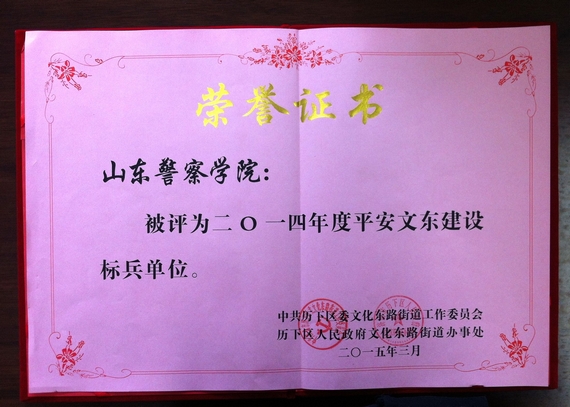 荣誉证书
山东警察学院：
被评为二〇一四年度平安文东建设
标兵单位。
中共历下区委文化东路街道工作委员会
历下区人民政府文化东路街道办事处
二〇一五年三月